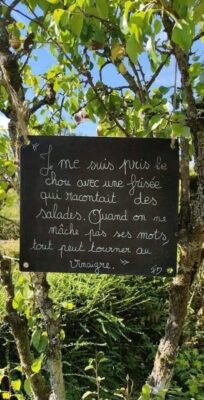 " Je me suis pris le
chou avec une frisée
qui racontait des
salades. Quand on ne
mâche pas ses mots,
tout peut tourner au
vinaigre. "